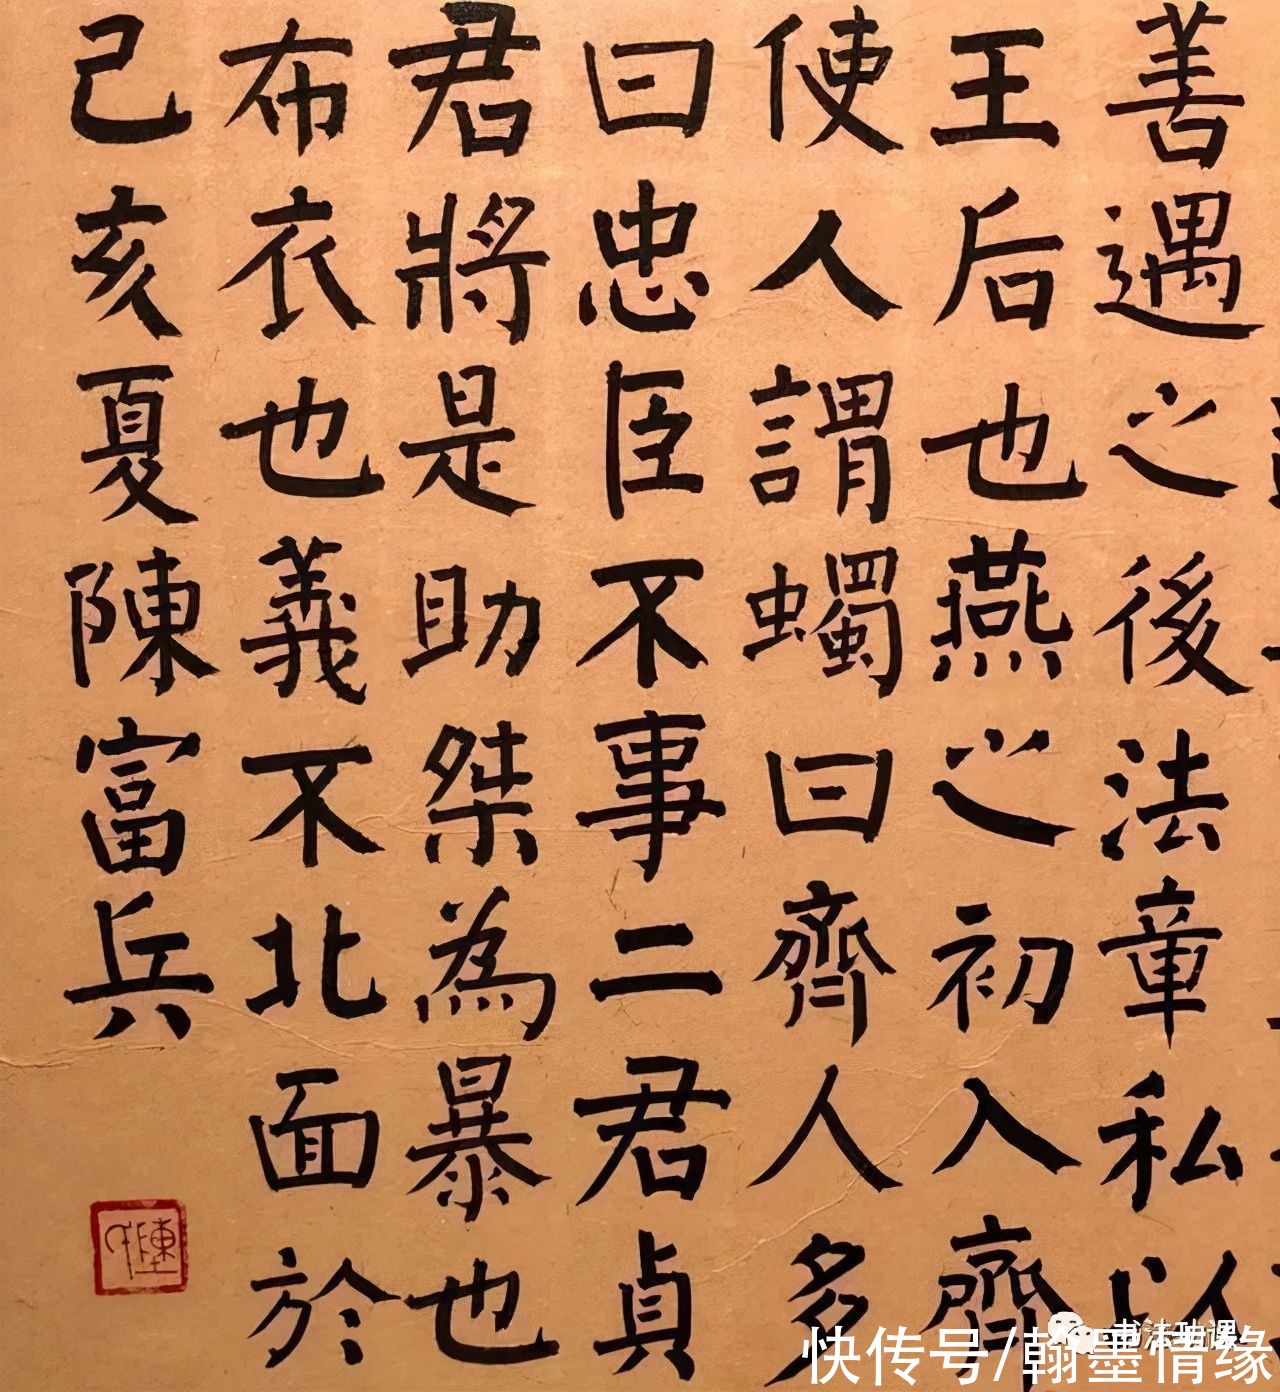 善遇之後法章私以
王后也燕之初入齊
使人謂蠋曰齊人多
曰忠臣不事二君貞
君將是助桀為暴也
布衣也義不北面於
己亥夏陳富兵
快传号/翰墨情缘